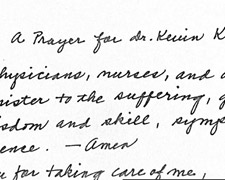 A Prayer for Dr. Kevin K
hysicians, nurses, and
ister to the suffering, g
sdom and skill, symp
ence. — Amen
u for taking care of me,